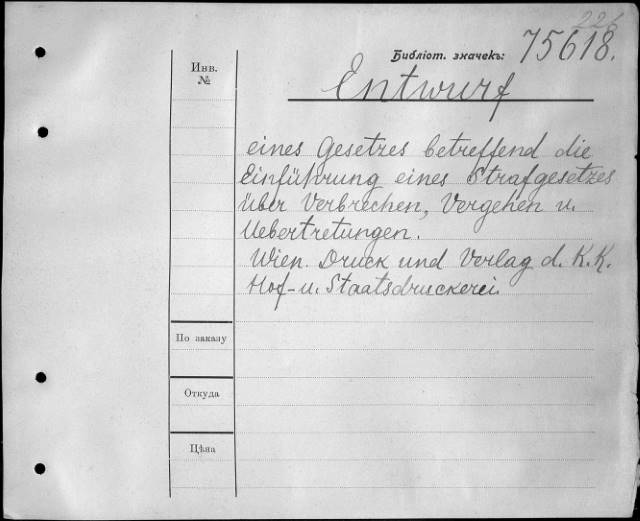 226
Библіот. значекъ: 75618.
Инв.
№
Entwurf
eines Gesetzes betreffend die
Einführung eines Strafgesetzes
über Verbrechen, Vergehen u.
Uebertretungen.
Wien. Druck und Verlag d. K. K.
Hof- u. Staatsdruckerei.
По заказу
Откуда
Цѣна